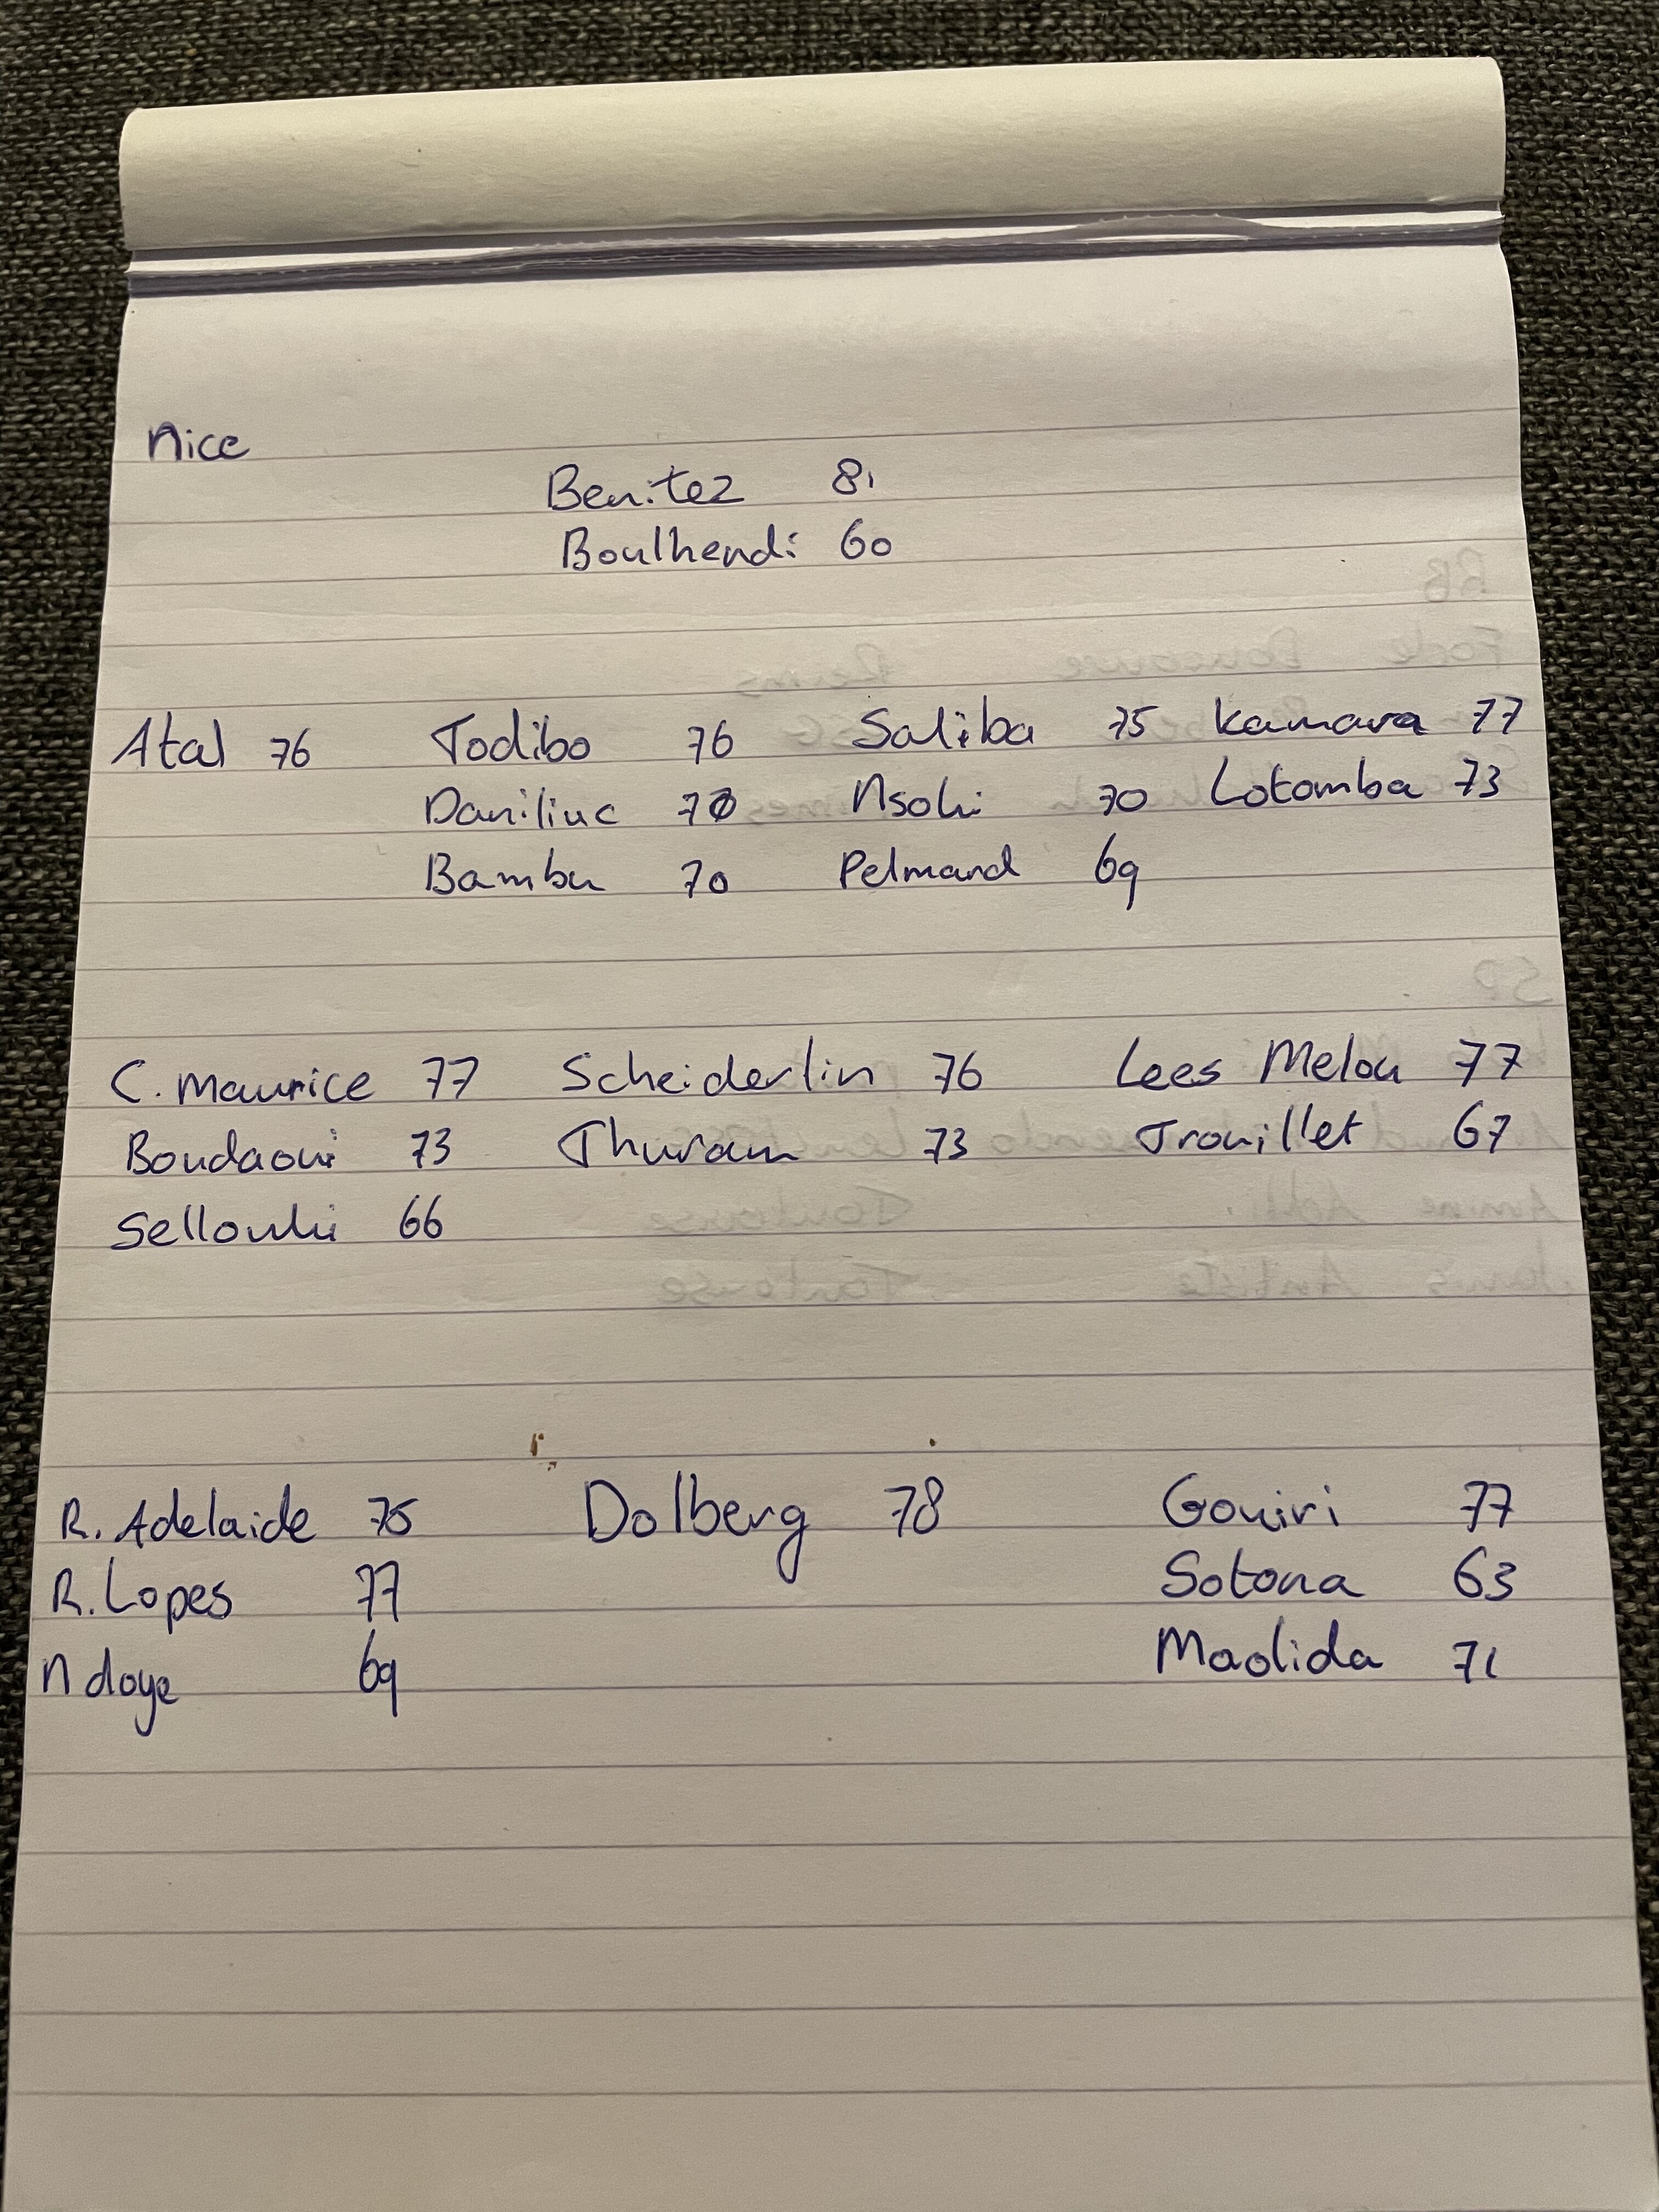 Nice
Benitez 81
Boulhendi 60
Atal 76 Todibo 76 Saliba 75 Kamara 77
Daniliuc 70 Nsoki 70 Lotomba 73
Bambu 70 Pelmard 69
C. Maurice 77 Scheiderlin 76 Lees Melou 77
Boudaoui 73 Thuram 73 Trouillet 67
Sellouki 66
R. Adelaide 75 Dolberg 78 Gouiri 77
R. Lopes 77 Sotona 63
Ndoye 69 Maolida 71